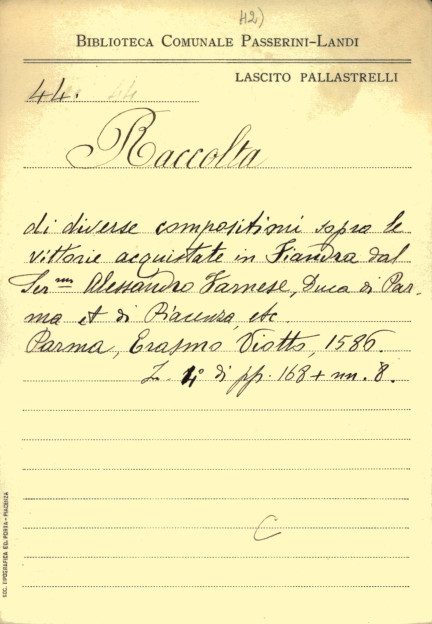 42)
BIBLIOTECA COMUNALE PASSERINI-LANDI
LASCITO PALLASTRELLI
44. 44
Raccolta
di diverse compositioni sopra le
vittorie acquistate in Fiandra dal
Ser.mo Alessandro Farnese, Duca di Par-
ma et di Piacenza, etc.
Parma, Erasmo Viotto, 1586.
4° di pp. 168 + nn. 8.
C
SOC. TIPOGRAFICA ED. PORTA - PIACENZA